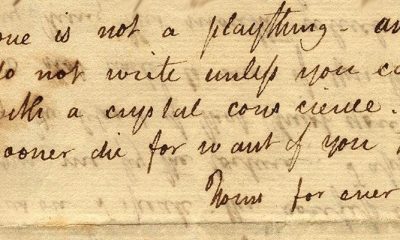 one is not a plaything - an
do not write unless you ca
with a crystal cons cience.
ooner die for want of you
Yours for ever